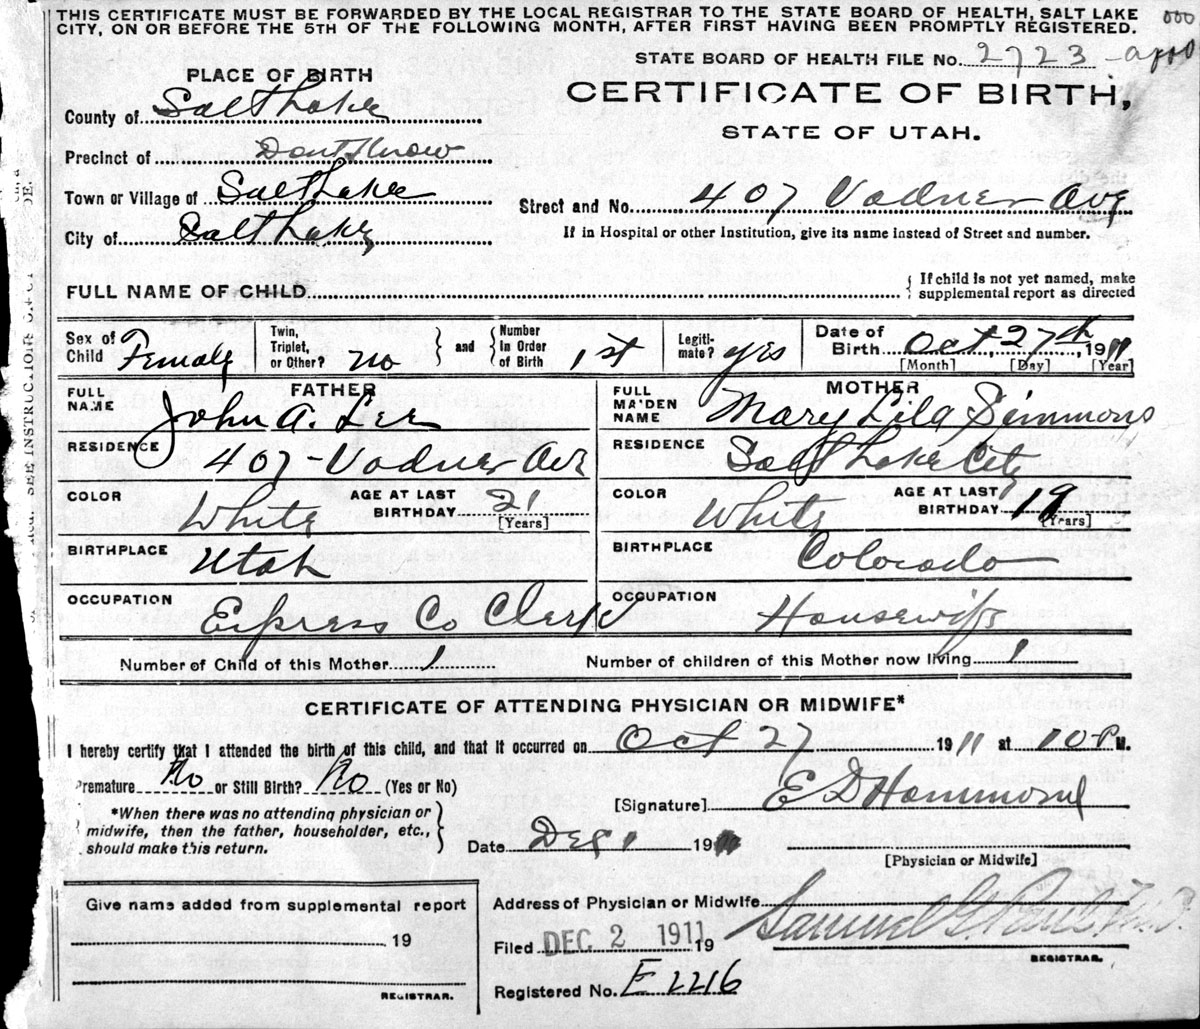 THIS CERTIFICATE MUST BE FORWARDED BY THE LOCAL REGISTRAR TO THE STATE BOARD OF HEALTH, SALT LAKE
CITY, ON OR BEFORE THE 5TH OF THE FOLLOWING MONTH, AFTER FIRST HAVING BEEN PROMPTLY REGISTERED.
STATE BOARD OF HEALTH FILE No. 2723
PLACE OF BIRTH
CERTIFICATE OF BIRTH,
STATE OF UTAH.
County of Salt Lake
Precinct of Dont Know
Town or Village of Salt Lake
Street and No. 407 Vadner Ave
City of Salt Lake
If in Hospital or other Institution, give its name instead of Street and number.
FULL NAME OF CHILD
{ If child is not yet named, make
supplemental report as directed
Sex of Child Female
Twin, Triplet, or Other? no
and
Number In Order of Birth 1st
Legiti-mate? yes
Date of Birth Oct, 27th, 1911
[Month] [Day] [Year]
FATHER
MOTHER
FULL NAME John A. Lee
FULL MAIDEN NAME Mary Lila Simmons
RESIDENCE 407 - Vadner Ave
RESIDENCE Salt Lake City
COLOR White
AGE AT LAST BIRTHDAY 21 [Years]
COLOR White
AGE AT LAST BIRTHDAY 19 [Years]
BIRTHPLACE Utah
BIRTHPLACE Colorado
OCCUPATION Express Co Clerk
OCCUPATION Housewife
Number of Child of this Mother 1
Number of children of this Mother now living 1
CERTIFICATE OF ATTENDING PHYSICIAN OR MIDWIFE*
I hereby certify that I attended the birth of this child, and that it occurred on Oct 27 1911 at 10 P.M.
Premature No or Still Birth? No (Yes or No)
[Signature] E D Hammond
*When there was no attending physician or
midwife, then the father, householder, etc.,
should make this return.
Date Dec 1 19
[Physician or Midwife]
Give name added from supplemental report
19
REGISTRAR.
Address of Physician or Midwife
Filed DEC 2 1911 19
Samuel G. Paul M.D.
REGISTRAR.
Registered No. E 2216